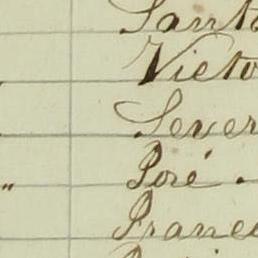 Santo
Victo
Sever
„ José .
Franci